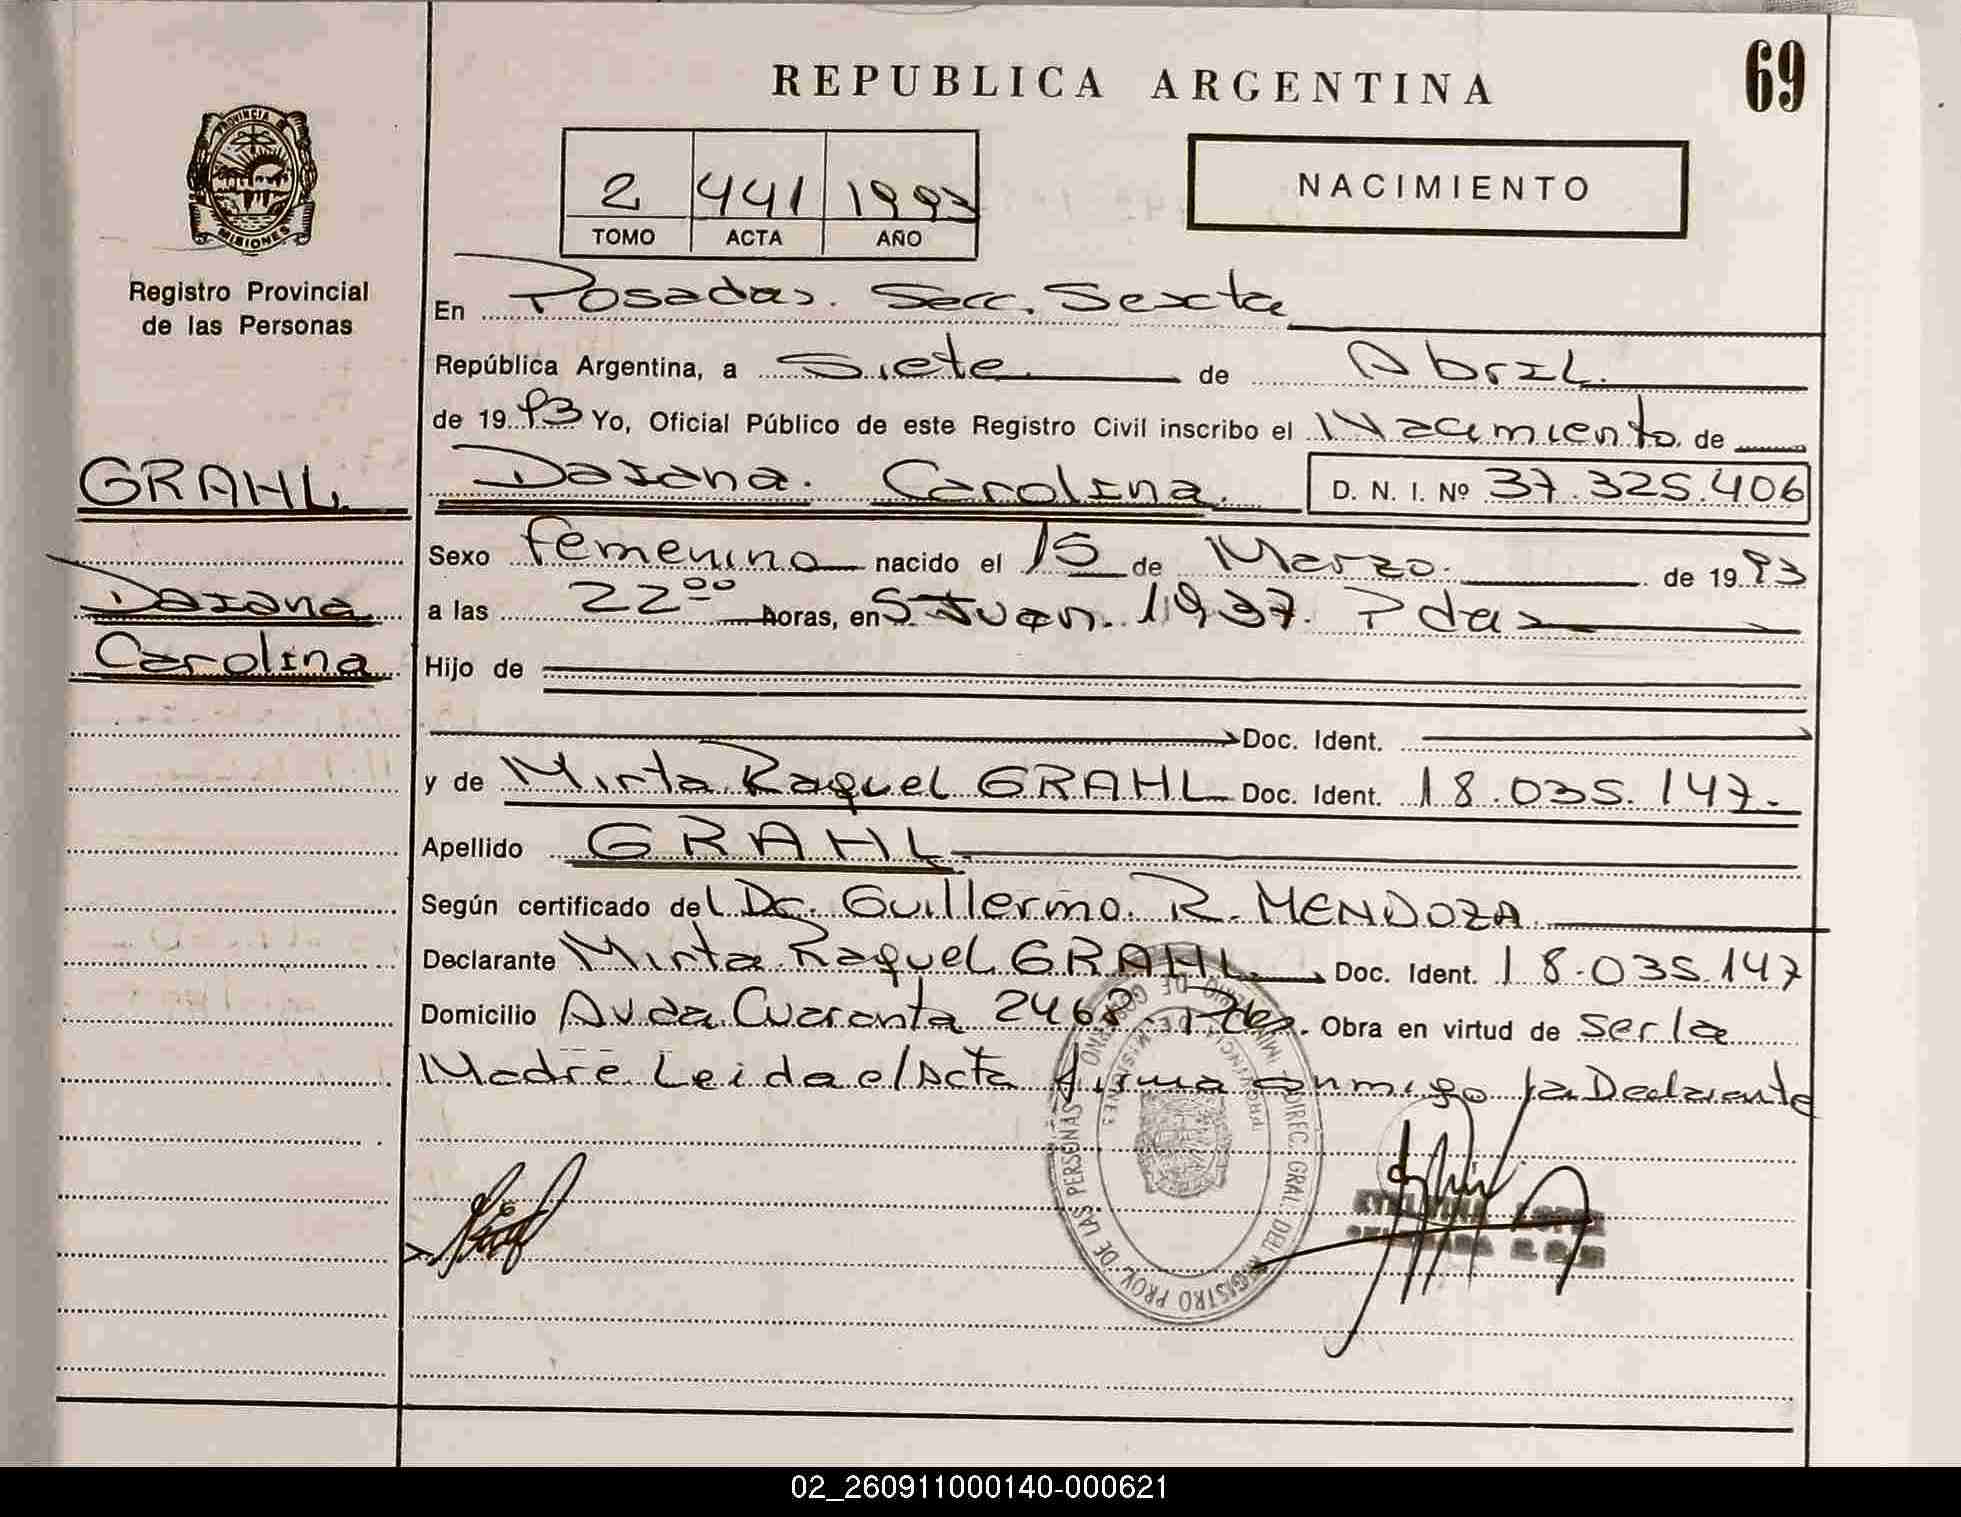 REPUBLICA ARGENTINA
69
PROVINCIA DE
MISIONES
Registro Provincial
de las Personas
2 441 1993
TOMO ACTA AÑO
NACIMIENTO
En Posadas. Secc. Sexta
República Argentina, a Siete de Abril.
de 1993 Yo, Oficial Público de este Registro Civil inscribo el Nacimiento de
GRAHL
Daiana. Carolina. D. N. I. Nº 37.325.406
Sexo femenino nacido el 15 de Marzo. de 1993
Daiana
a las 22⁰⁰ horas, en S. Juan. 1937. Pdas
Carolina
Hijo de
Doc. Ident.
y de Mirta Raquel GRAHL Doc. Ident. 18.035.147.
Apellido GRAHL
Según certificado del Dr. Guillermo R. MENDOZA
Declarante Mirta Raquel GRAHL Doc. Ident. 18.035.147
Domicilio Avda. Cuaranta 2468 Pdas. Obra en virtud de ser la
Madre Leida e/Acta firma conmigo la Declarante
MINISTERIO DE GOBIERNO
DIREC. GRAL. DEL REGISTRO PROV. DE LAS PERSONAS
PROVINCIA DE MISIONES
02_260911000140-000621